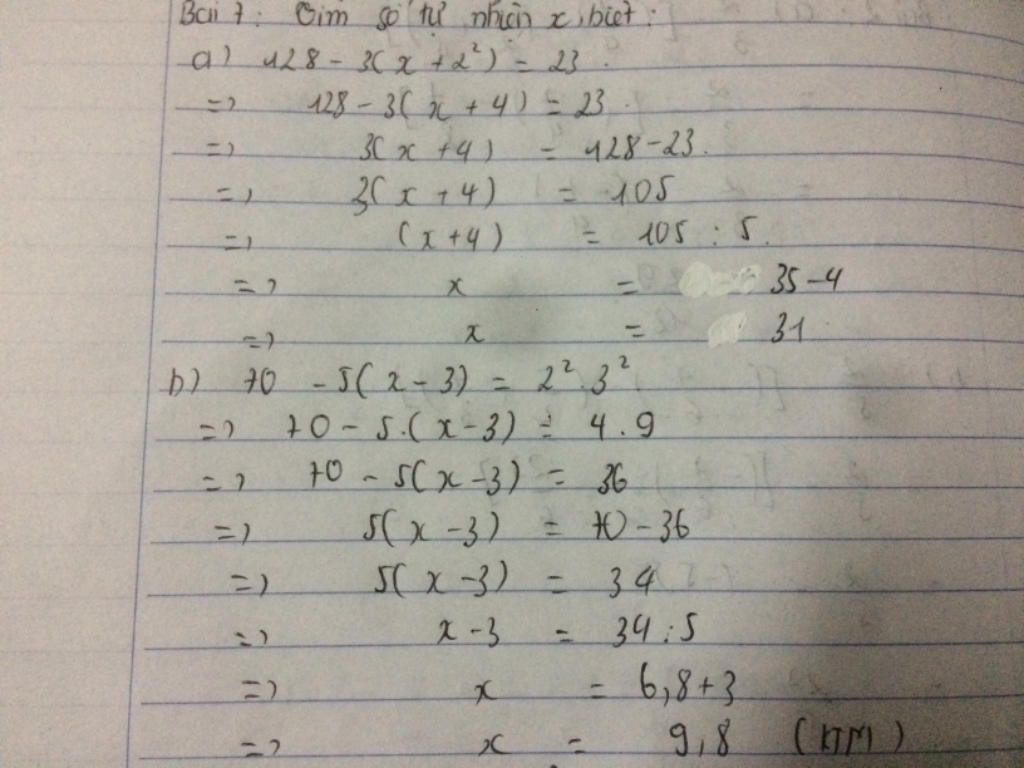 Bài 7: Tìm số tự nhiên x, biết:
a) 128 - 3(x + 2²) = 23.
=> 128 - 3(x + 4) = 23.
=> 3(x + 4) = 128 - 23.
=> 3(x + 4) = 105
=> (x + 4) = 105 : 5.
=> x = 35 - 4
=> x = 31
b) 70 - 5(x - 3) = 2² . 3²
=> 70 - 5.(x - 3) = 4 . 9
=> 70 - 5(x - 3) = 36
=> 5(x - 3) = 70 - 36
=> 5(x - 3) = 34
=> x - 3 = 34 : 5
=> x = 6,8 + 3
=> x = 9,8 (KTM)